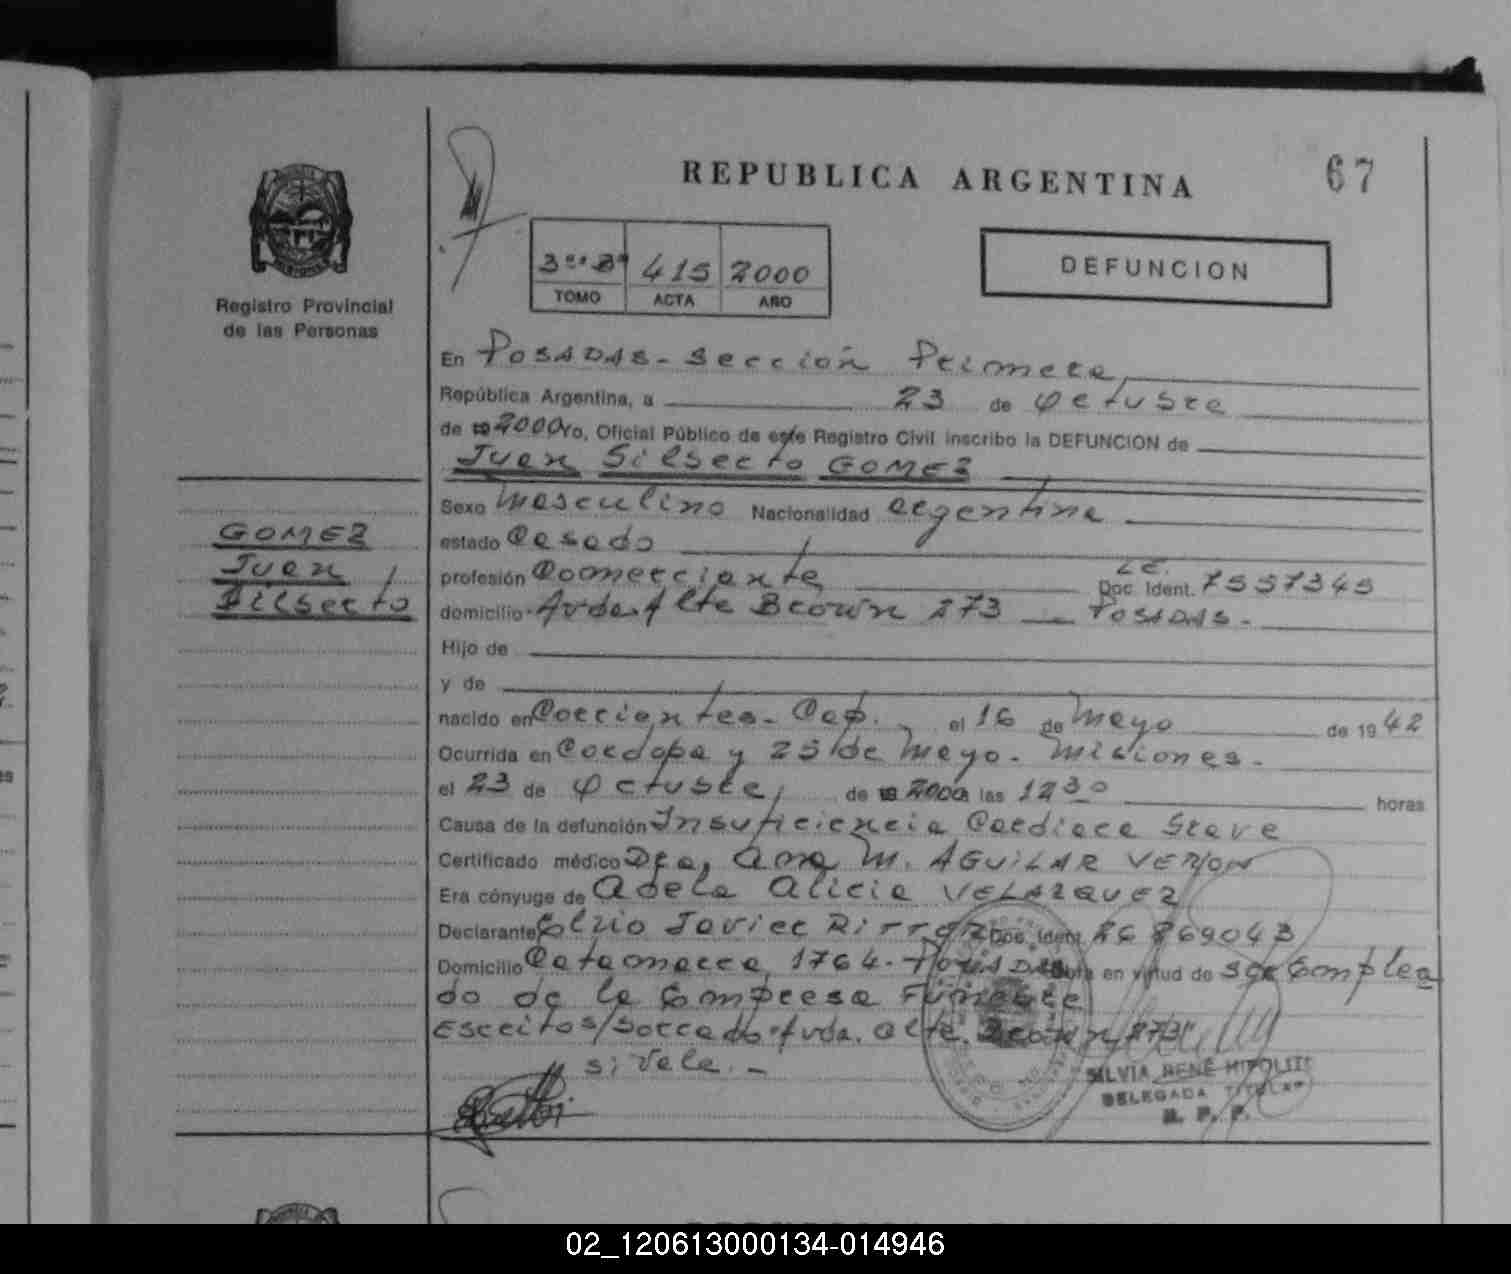 REPUBLICA ARGENTINA
67
415 2000
TOMO ACTA AÑO
DEFUNCION
Registro Provincial
de las Personas
En POSADAS - Sección Primera
República Argentina, a 23 de Octubre
de 2000 Yo, Oficial Público de este Registro Civil inscribo la DEFUNCION de
Juan Silberto GOMEZ
Sexo Masculino Nacionalidad argentina
GOMEZ
Juan
Silberto
estado Casado
profesión Comerciante L.E. Doc. Ident. 7557345
domicilio Avda. Alte Brown 273 POSADAS -
Hijo de
y de
nacido en Corrientes - Cap. el 16 de Mayo de 1942
Ocurrida en Cordoba y 25 de Mayo - Misiones -
el 23 de Octubre, de 2000 a las 12 30 horas
Causa de la defunción Insuficiencia Cardiaca Grave
Certificado médico Dra. Ana M. AGUILAR
Era cónyuge de Adela Alicia VELAZQUEZ
Declarante Javier Doc. Ident. 26869043
Domicilio Catamarca 1764 - POSADAS en virtud de ser Emplea
do de la Empresa Funebre
Avda. Alte. Brown 273"
si Vale. -
SILVIA RENÉ HIPOLITE
DELEGADA TITULAR
R. P. P.
02_120613000134-014946